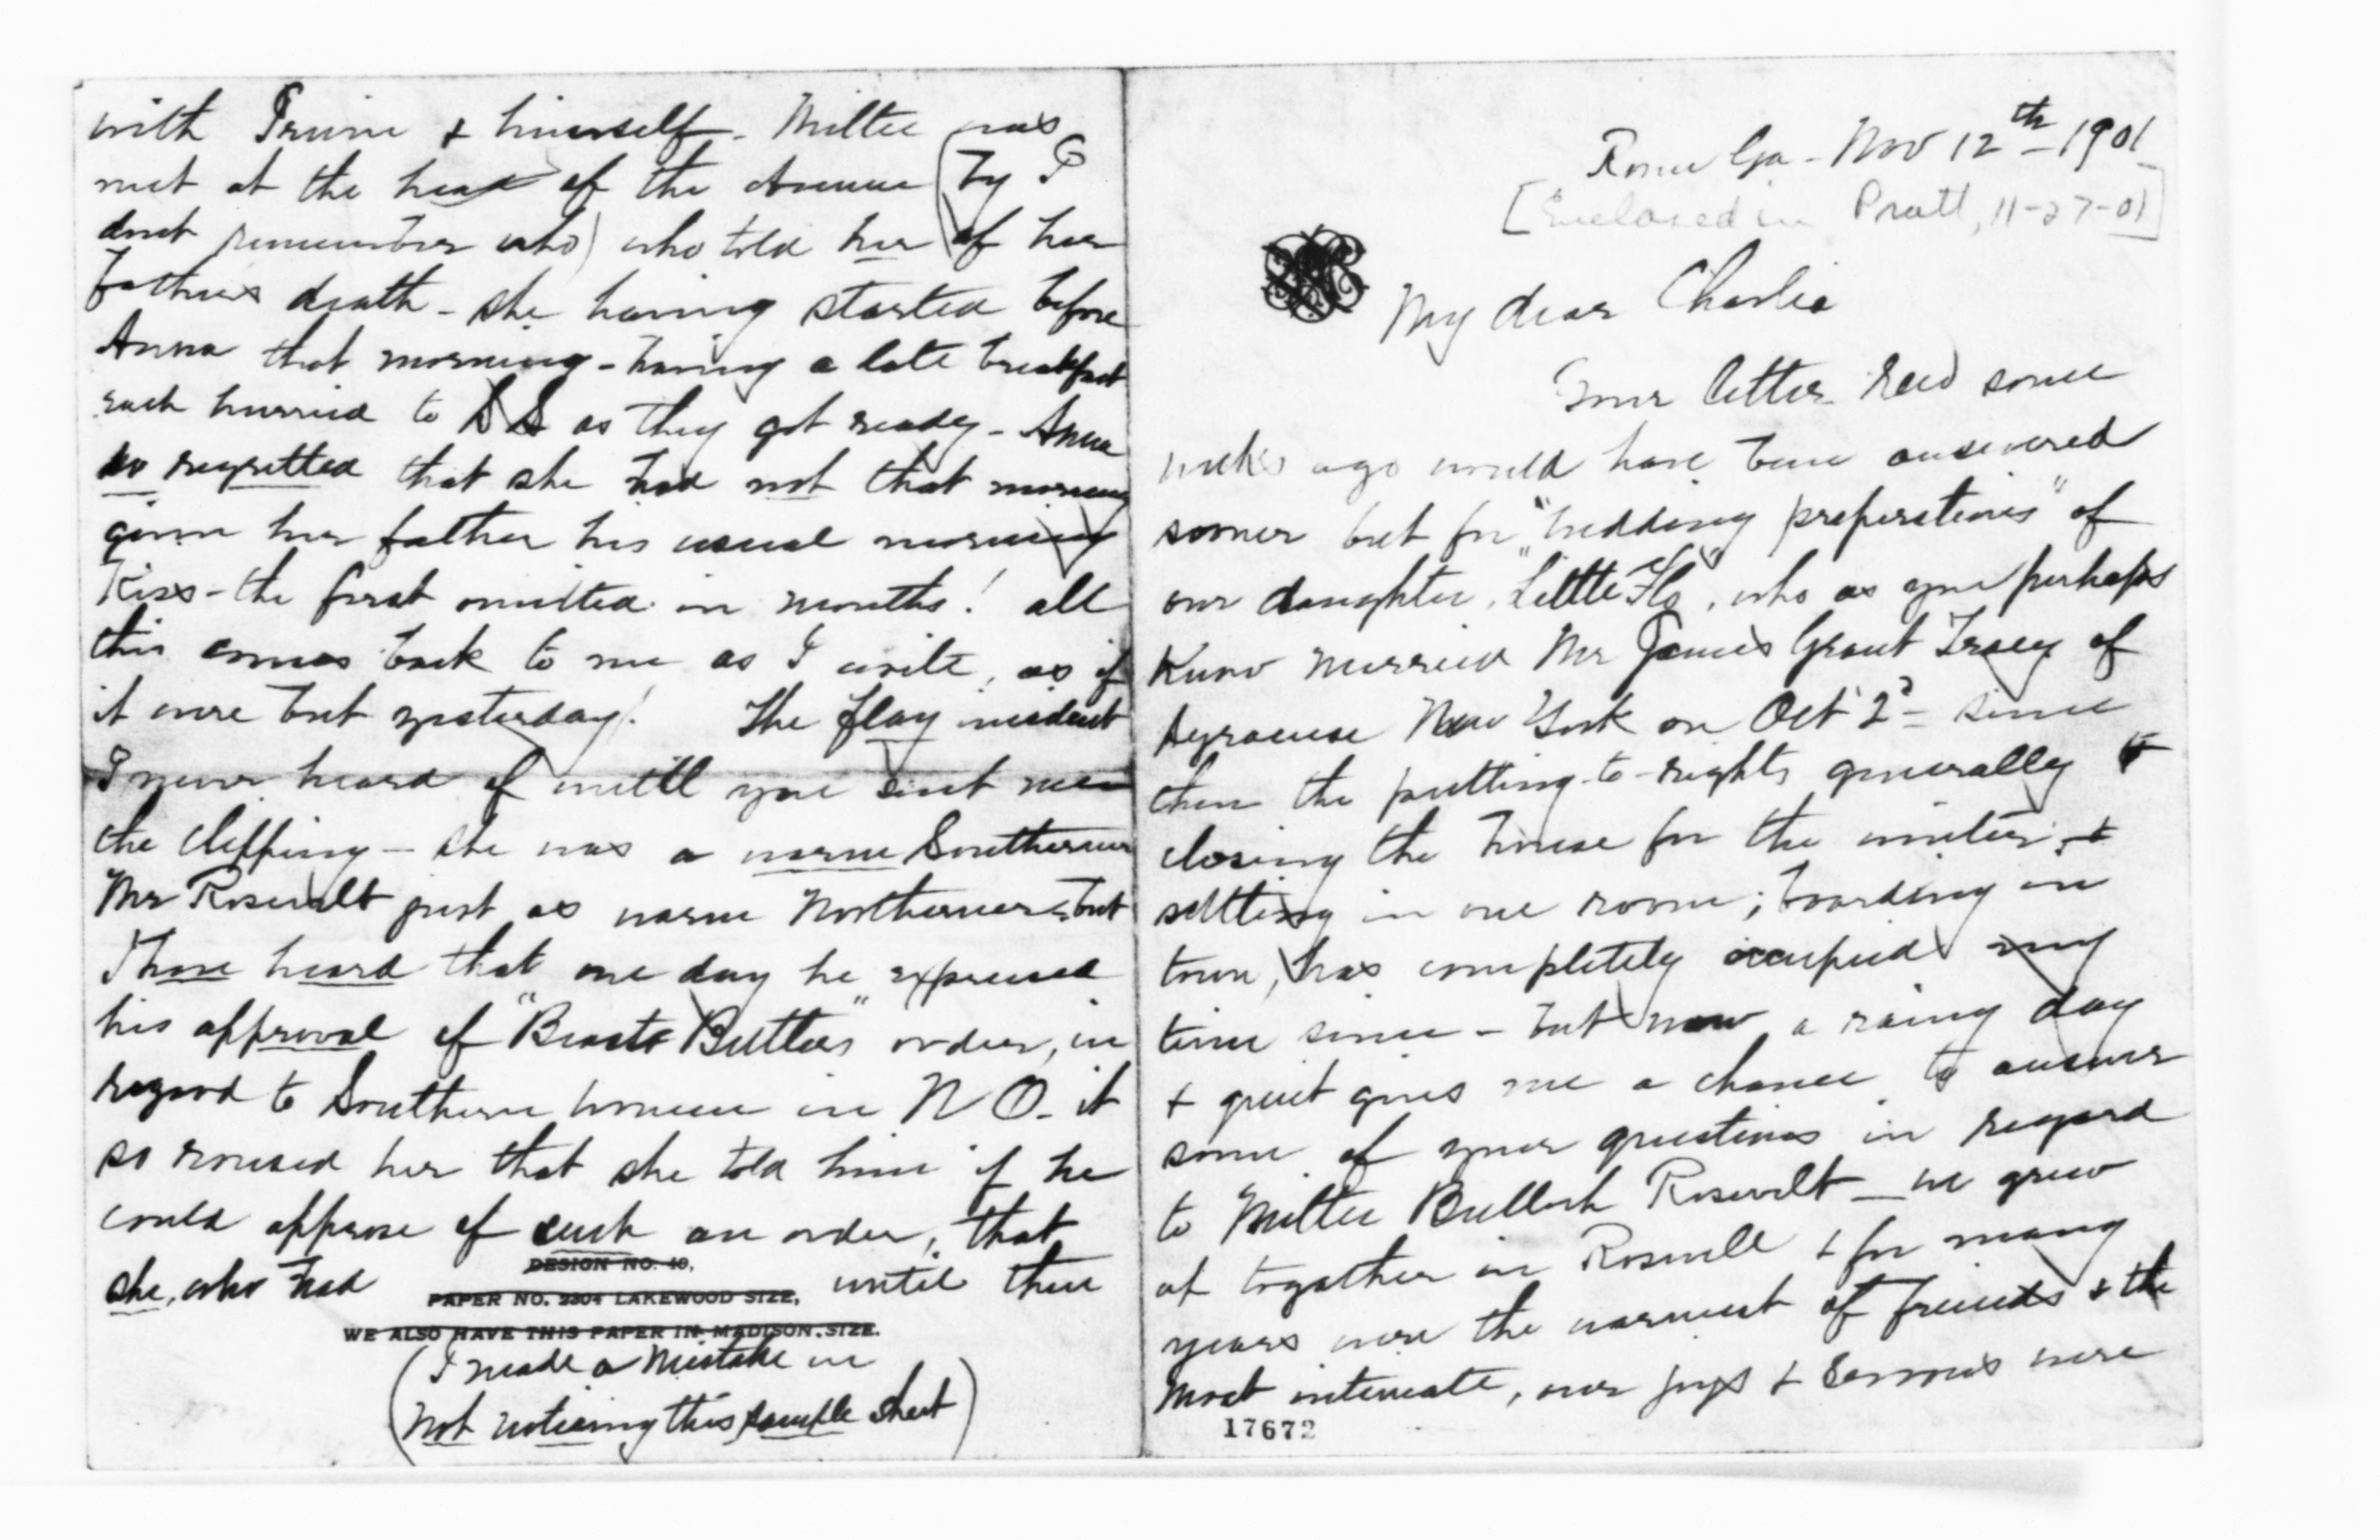 Rome Ga - Nov 12th - 1901
[Enclosed in Pratt, 11-27-01]
My dear Charlie
Your letter recd some
weeks ago would have been answered
sooner but for "wedding preperations" of
our daughter, "Little Flo", who as you perhaps
know married Mr James Grant Tracy of
Syracuse New York on Oct 2d - since
then the putting-to-rights generally &
closing the house for the winter, &
settling in one room; boarding in
town, has completely occupied my
time since - but now a rainy day
& quiet gives me a chance to answer
some of your questions in regard
to Mittie Bulloch Rosevelt - we grew
up together in Roswell & for many
years were the warmest of friends & the
most intimate, our joys & sorrows were
17672
with & himself - Mittie was
met at the head of the Avenue (by I
dont remember who) who told her of her
fathers death - she having started before
Anna that morning - having a late breakfast
each hurried to S S as they got ready - Anna
so regretted that she had not that morning
given her father his usual morning
Kiss - the first omitted in months! all
this comes back to me as I write, as if
it were but yesterday! The flag incident
I never heard of untill you sent me
the clipping - she was a warm Southerner
Mr Rosevelt just as warm Northerner - but
I have heard that one day he expressed
his approval of "Beast Butlers" order, in
regard to Southern women in N O - it
so roused her that she told him if he
could approve of such an order, that
DESIGN NO. 10.
she, who had until then
PAPER NO. 2304 LAKEWOOD SIZE,
WE ALSO HAVE THIS PAPER IN MADISON SIZE.
(I made a mistake in
not noticing this sample sheet)